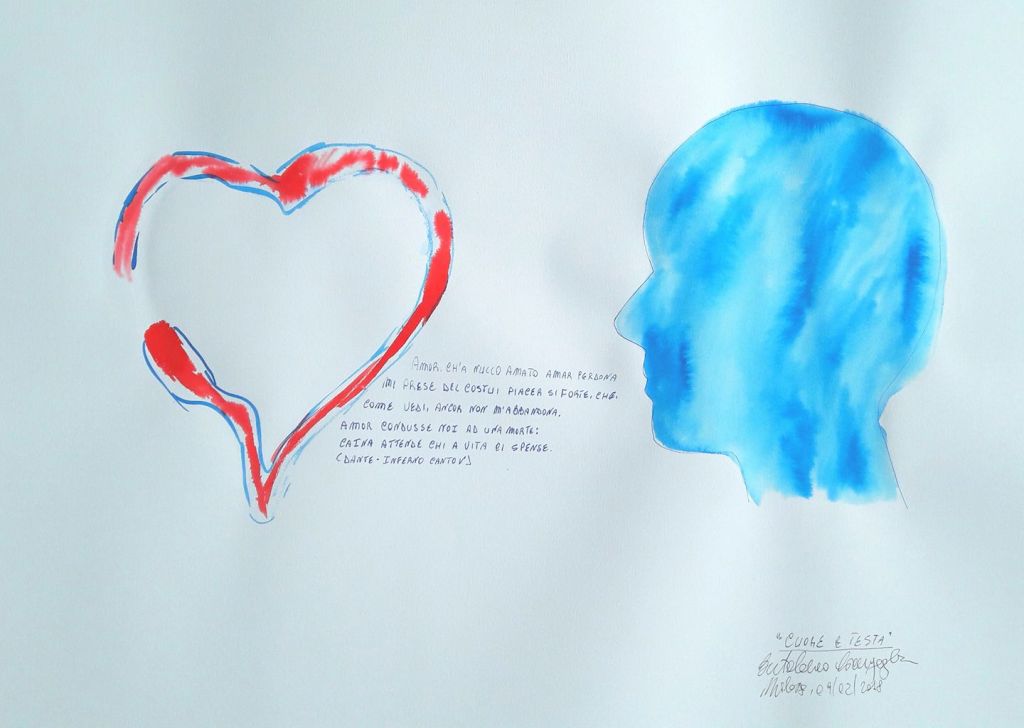 AMOR, CH'A NULLO AMATO AMAR PERDONA
MI PRESE DEL COSTUI PIACER SI FORTE, CHE,
COME VEDI, ANCOR NON M'ABBANDONA.
AMOR CONDUSSE NOI AD UNA MORTE:
CAINA ATTENDE CHI A VITA CI SPENSE.
(DANTE - INFERNO CANTO V)
"CUORE E TESTA"
Milano, 04/02/2018